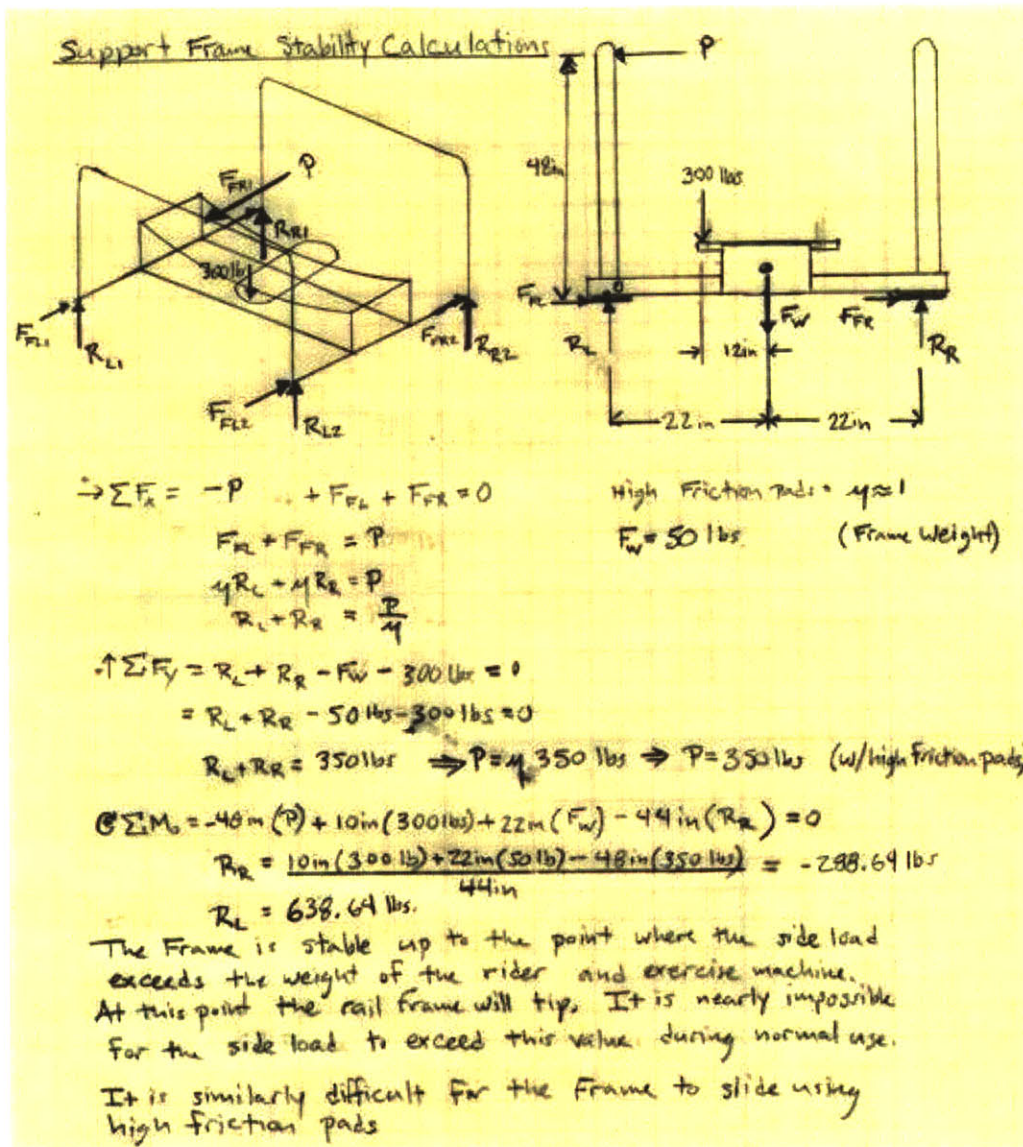 Support Frame Stability Calculations
P
48in
300 lbs
P
F_FR1
R_R1
300lb
F_FL1
R_L1
F_FR2
R_R2
F_FL2
R_L2
F_FL
R_L
F_W
F_FR
R_R
12in
22in
22in
→ΣFx = -P + F_FL + F_FR = 0
F_FL + F_FR = P
μR_L + μR_R = P
R_L + R_R = P/μ
High Friction Pads = μ≈1
F_W = 50 lbs (Frame Weight)
↑ΣFy = R_L + R_R - F_W - 300 lbs = 0
= R_L + R_R - 50 lbs - 300 lbs = 0
R_L + R_R = 350 lbs ⇒ P = μ 350 lbs ⇒ P = 350 lbs (w/high friction pads)
ΣM₀ = -48in (P) + 10in (300lbs) + 22in (F_W) - 44in (R_R) = 0
R_R = 10in (300 lb) + 22in (50 lb) - 48in (350 lbs) / 44in = -288.64 lbs
R_L = 638.64 lbs.
The Frame is stable up to the point where the side load
exceeds the weight of the rider and exercise machine.
At this point the rail frame will tip. It is nearly impossible
for the side load to exceed this value during normal use.
It is similarly difficult for the Frame to slide using
high friction pads